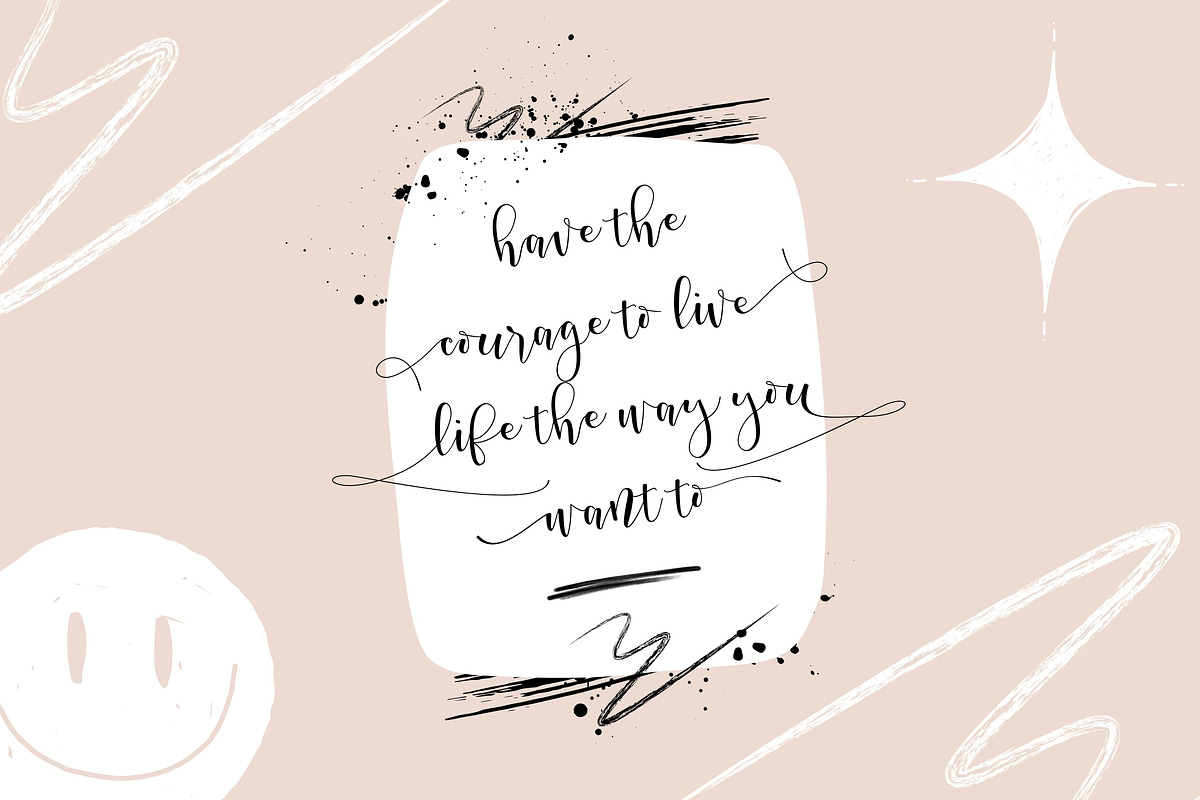 have the
courage to live
life the way you
want to